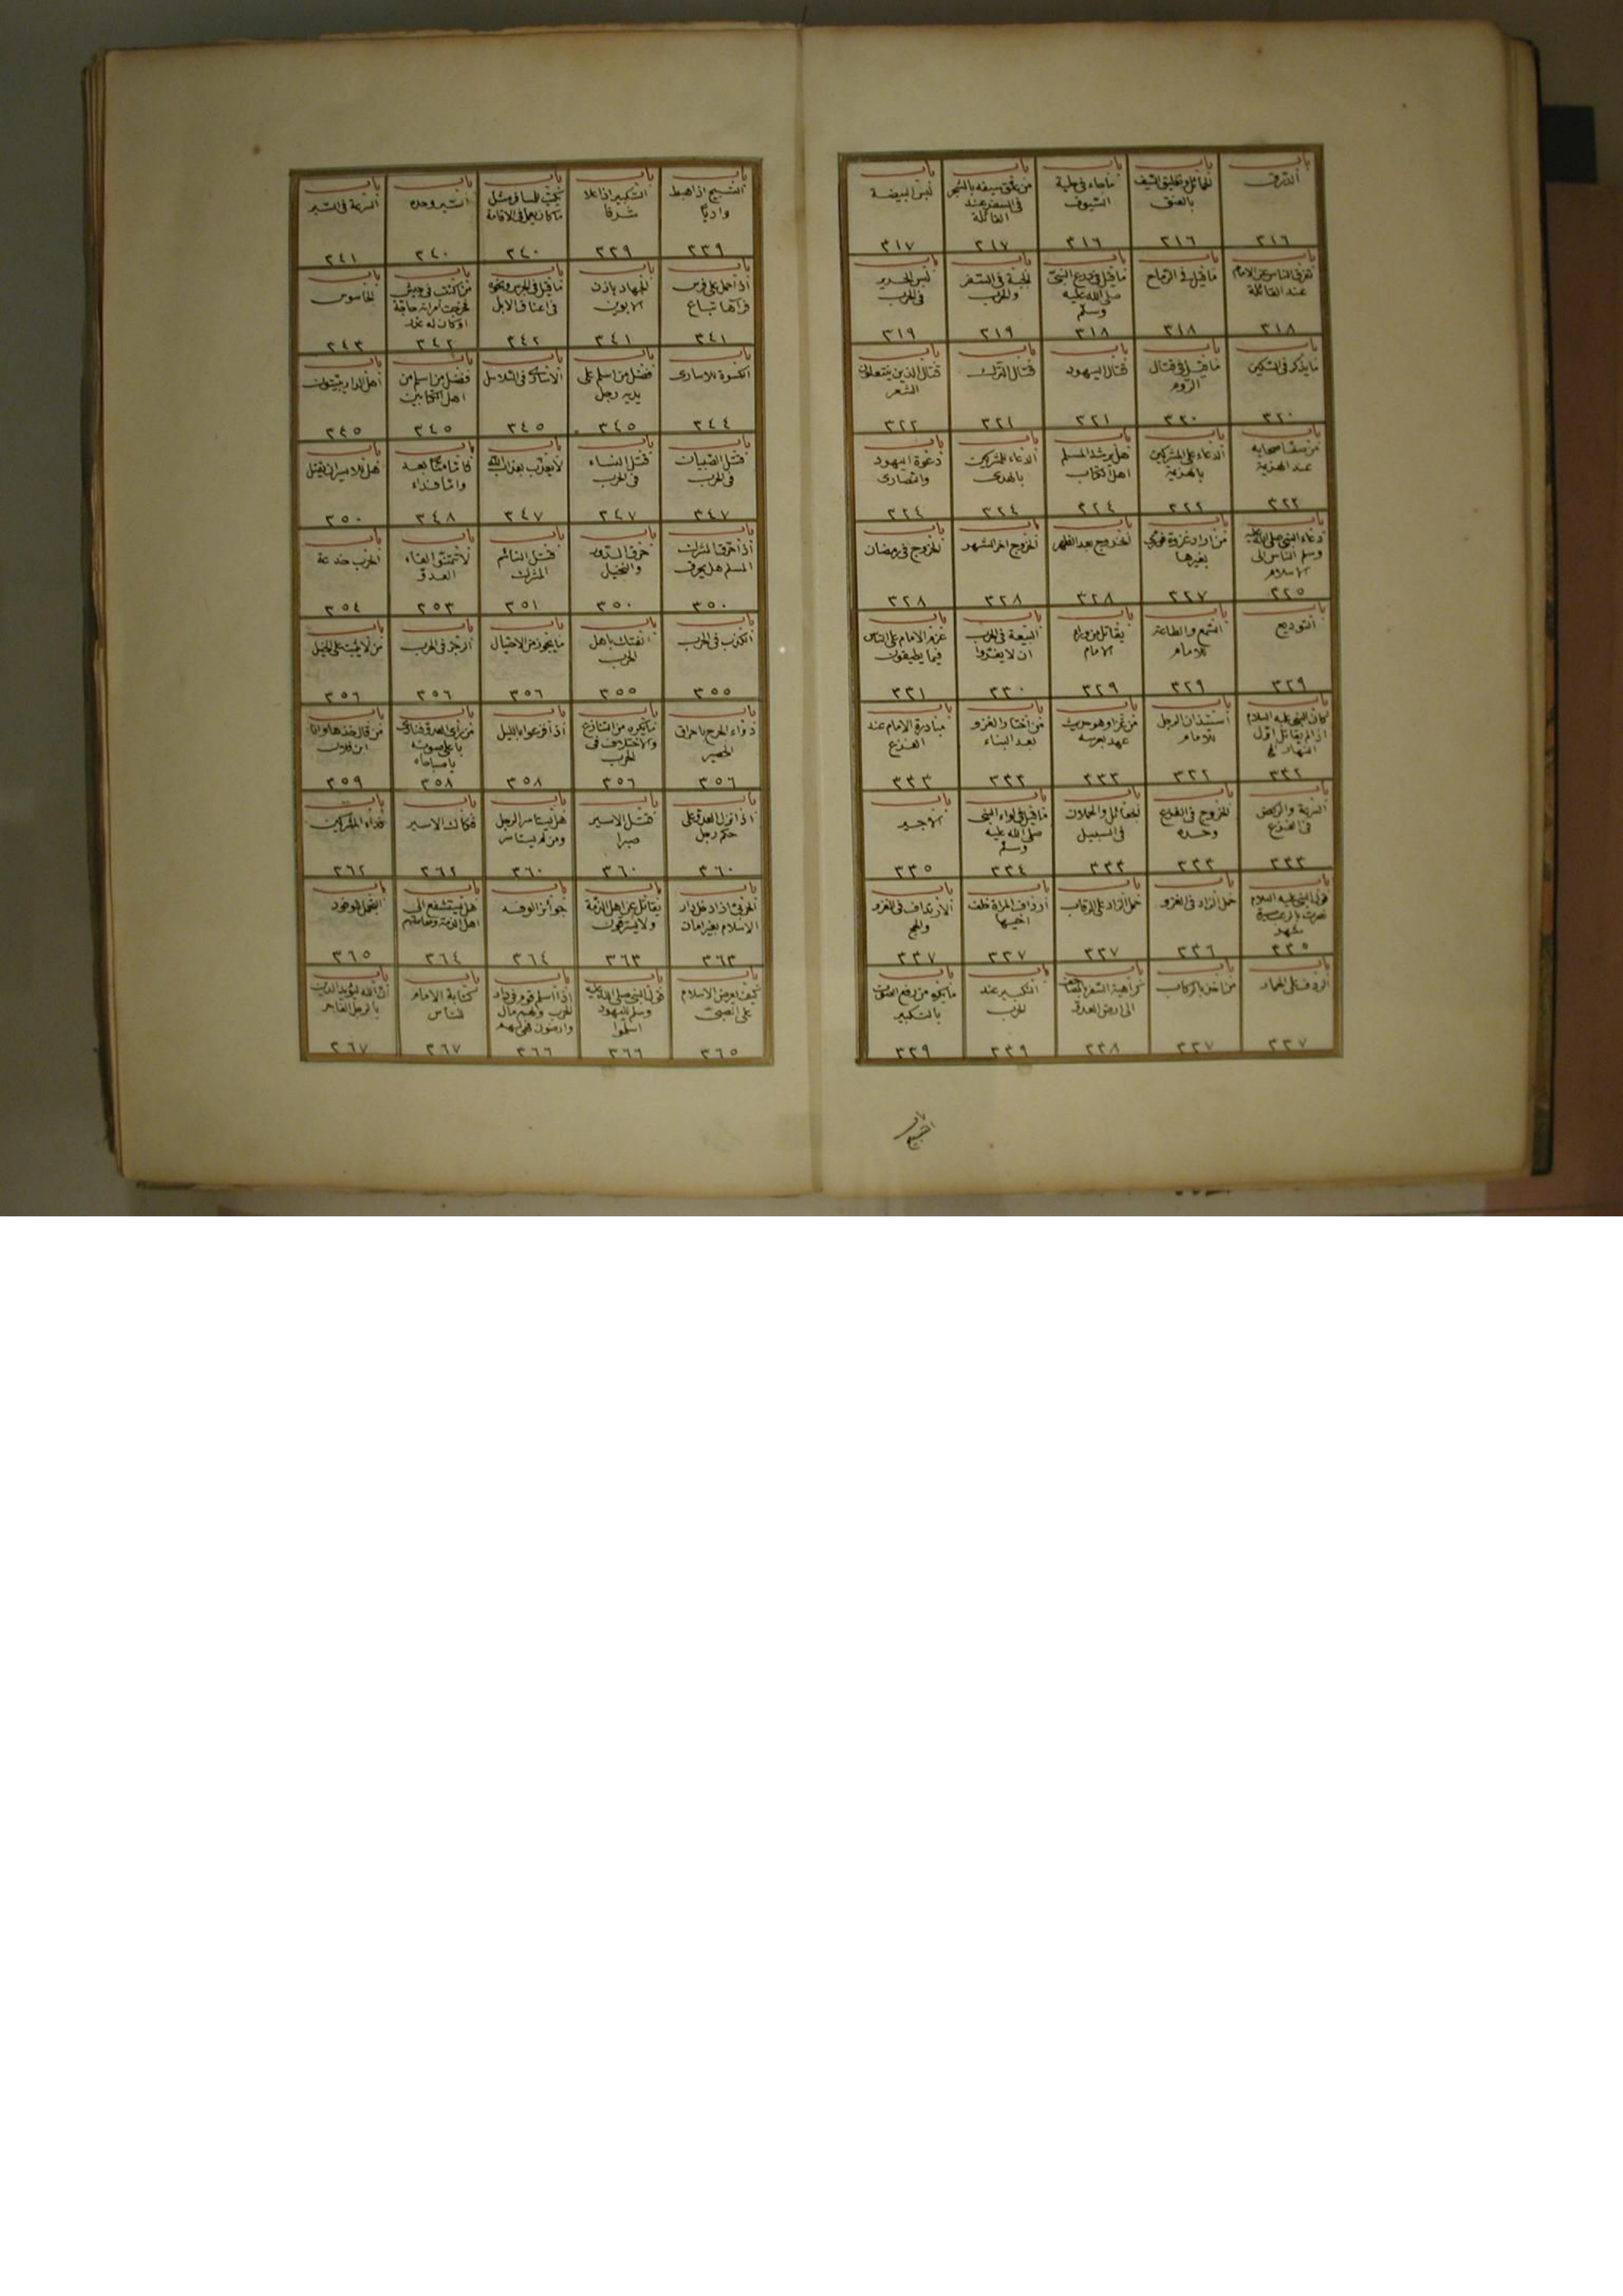 باب
الدرق
٣١٦
باب
الحمائل وتعليق السيف
بالعنق
٣١٦
باب
ما جاء في حلية
السيوف
٣١٦
باب
من علق سيفه بالشجر
في السفر عند
القائلة
٣١٧
باب
لبس البيضة
٣١٧
باب
تفرق الناس عن الامام
عند القائلة
٣١٨
باب
ما قيل في الرماح
٣١٨
باب
ما قيل في درع النبي
صلى الله عليه
وسلم
٣١٨
باب
الجبة في السفر
والحرب
٣١٩
باب
لبس الحرير
في الحرب
٣١٩
باب
ما يذكر في السكين
٣٢٠
باب
ما قيل في قتال
الروم
٣٢٠
باب
قتال اليهود
٣٢١
باب
قتال الترك
٣٢١
باب
قتال الذين ينتعلون
الشعر
٣٢٢
باب
من صف اصحابه
عند الهزيمة
٣٢٢
باب
الدعاء على المشركين
بالهزيمة
٣٢٢
باب
هل يرشد المسلم
اهل الكتاب
٣٢٤
باب
الدعاء للمشركين
بالهدى
٣٢٤
باب
دعوة اليهود
والنصارى
٣٢٤
باب
دعاء النبي صلى الله عليه
وسلم الناس الى
الاسلام
٣٢٥
باب
من اراد غزوة فورى
بغيرها
٣٢٧
باب
الخروج بعد الظهر
٣٢٨
باب
الخروج اخر الشهر
٣٢٨
باب
الخروج في رمضان
٣٢٨
باب
التوديع
٣٢٩
باب
السمع والطاعة
للامام
٣٢٩
باب
يقاتل من وراء
الامام
٣٢٩
باب
البيعة في الحرب
ان لا يفروا
٣٣٠
باب
عزم الامام على الناس
فيما يطيقون
٣٣١
باب
كان النبي عليه السلام
اذا لم يقاتل اول
النهار الخ
٣٣٢
باب
استئذان الرجل
للامام
٣٣٢
باب
من غزا وهو حديث
عهد بعرسه
٣٣٣
باب
من اختار الغزو
بعد البناء
٣٣٣
باب
مبادرة الامام عند
الفزع
٣٣٣
باب
السرعة والركض
في الفزع
٣٣٣
باب
الخروج في الفزع
وحده
٣٣٣
باب
الجعائل والحملان
في السبيل
٣٣٣
باب
ما قيل في لواء النبي
صلى الله عليه
وسلم
٣٣٤
باب
الاجير
٣٣٥
باب
قول النبي عليه السلام
نصرت بالرعب مسيرة
شهر
٣٣٥
باب
حمل الزاد في الغزو
٣٣٦
باب
حمل الزاد على الرقاب
٣٣٧
باب
ارداف المراة خلف
اخيها
٣٣٧
باب
الارتداف في الغزو
والحج
٣٣٧
باب
الردف على الحمار
٣٣٧
باب
من اخذ بالركاب
٣٣٧
باب
كراهية السفر بالمصاحف
الى ارض العدو
٣٣٨
باب
التكبير عند
الحرب
٣٣٩
باب
ما يكره من رفع الصوت
بالتكبير
٣٣٩
باب
التسبيح اذا هبط
واديا
٣٣٩
باب
التكبير اذا علا
شرفا
٣٣٩
باب
يكتب للمسافر مثل
ما كان يعمل في الاقامة
٣٤٠
باب
السير وحده
٣٤٠
باب
السرعة في السير
٣٤١
باب
اذا حمل على فرس
فرآها تباع
٣٤١
باب
الجهاد باذن
الابوين
٣٤١
باب
ما قيل في الجرس ونحوه
في اعناق الابل
٣٤٢
باب
من اكتتب في جيش
فخرجت امراته حاجة
او كان له عذر
٣٤٢
باب
الجاسوس
٣٤٣
باب
الكسوة للاسارى
٣٤٤
باب
فضل من اسلم على
يديه رجل
٣٤٥
باب
الاسارى في السلاسل
٣٤٥
باب
فضل من اسلم من
اهل الكتابين
٣٤٥
باب
اهل الدار يبيتون
٣٤٥
باب
قتل الصبيان
في الحرب
٣٤٧
باب
قتل النساء
في الحرب
٣٤٧
باب
لا يعذب بعذاب الله
٣٤٧
باب
فاما منا بعد
واما فداء
٣٤٨
باب
هل للاسير ان يقتل
٣٥٠
باب
اذا حرق المشرك
المسلم هل يحرق
٣٥٠
باب
حرق الدور
والنخيل
٣٥٠
باب
قتل النائم
المشرك
٣٥١
باب
لا تمنوا لقاء
العدو
٣٥٣
باب
الحرب خدعة
٣٥٤
باب
الكذب في الحرب
٣٥٥
باب
الفتك باهل
الحرب
٣٥٥
باب
ما يجوز من الاحتيال
٣٥٦
باب
الرجز في الحرب
٣٥٦
باب
من لا يثبت على الخيل
٣٥٦
باب
دواء الجرح باحراق
الحصير
٣٥٦
باب
ما يكره من التنازع
والاختلاف في
الحرب
٣٥٦
باب
اذا فزعوا بالليل
٣٥٨
باب
من راى العدو فنادى
باعلى صوته
يا صباحاه
٣٥٨
باب
من قال خذها وانا
ابن فلان
٣٥٩
باب
اذا نزل العدو على
حكم رجل
٣٦٠
باب
قتل الاسير
صبرا
٣٦٠
باب
هل يستاسر الرجل
ومن لم يستاسر
٣٦٠
باب
فكاك الاسير
٣٦٢
باب
فداء المشركين
٣٦٢
باب
الحربي اذا دخل دار
الاسلام بغير امان
٣٦٣
باب
يقاتل عن اهل الذمة
ولا يسترقون
٣٦٣
باب
جوائز الوفد
٣٦٤
باب
هل يستشفع الى
اهل الذمة ومعاملتهم
٣٦٤
باب
التجمل للوفود
٣٦٥
باب
كيف يعرض الاسلام
على الصبي
٣٦٥
باب
قول النبي صلى الله عليه
وسلم لليهود
اسلموا
٣٦٦
باب
اذا اسلم قوم في دار
الحرب ولهم مال
وارضون فهي لهم
٣٦٦
باب
كتابة الامام
للناس
٣٦٧
باب
ان الله ليؤيد الدين
بالرجل الفاجر
٣٦٧